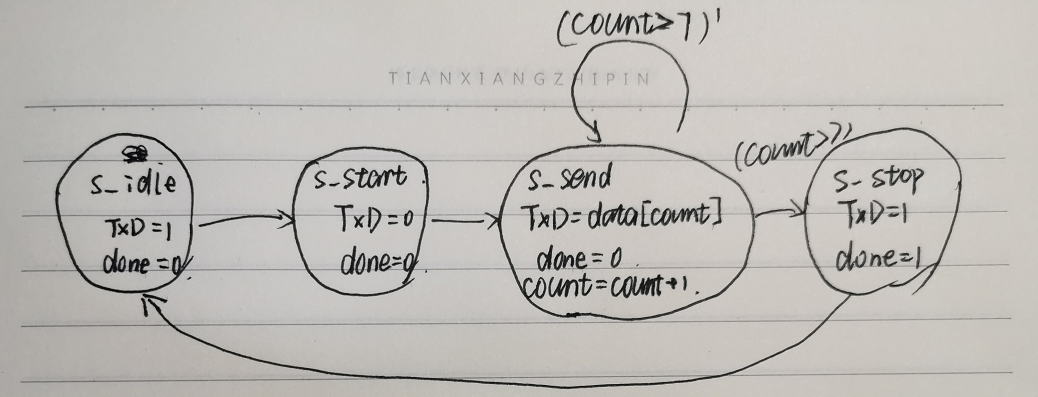 (count>7)'
TIANXIANGZHIPIN
(count>7)
s_idle
TxD=1
done=0
s_start
TxD=0
done=0
s_send
TxD=data[count]
done=0
count=count+1.
s_stop
TxD=1
done=1